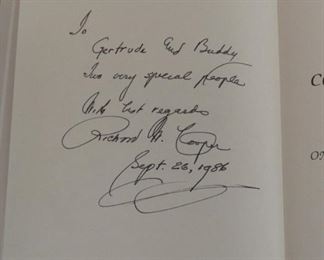 To
Gertrude and Buddy
Two very special people
With best regards
Richard M. Cooper
Sept. 26, 1986
C
O